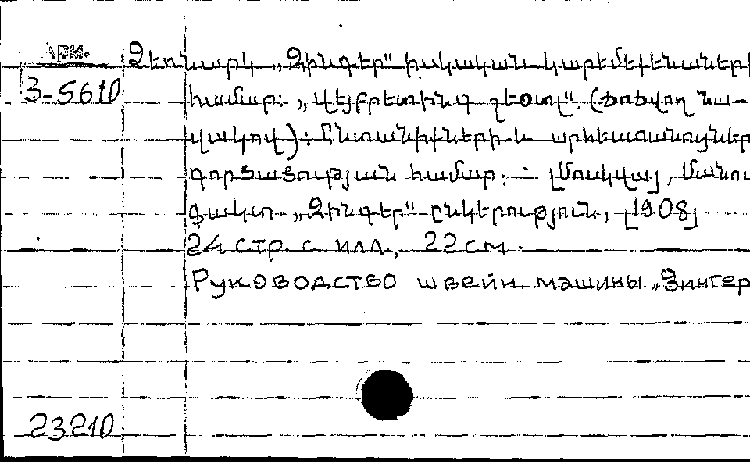 Арм.
3-5610
Ձեռնարկ „Զինգեր“ իսկական կարէմեքենաների
համար: „Վէյբրետինգ շետտլ“. (Ծռծվող նա-
վակով): Ընտանիքների և արհեստանոցներ
գործածության համար: - [Մոսկվա], Մանու
ֆակտ. „Զինգեր“ ընկերություն, [1908]
24 стр. с илл., 22 см.
Руководство швейн. машины „Зингер
23210